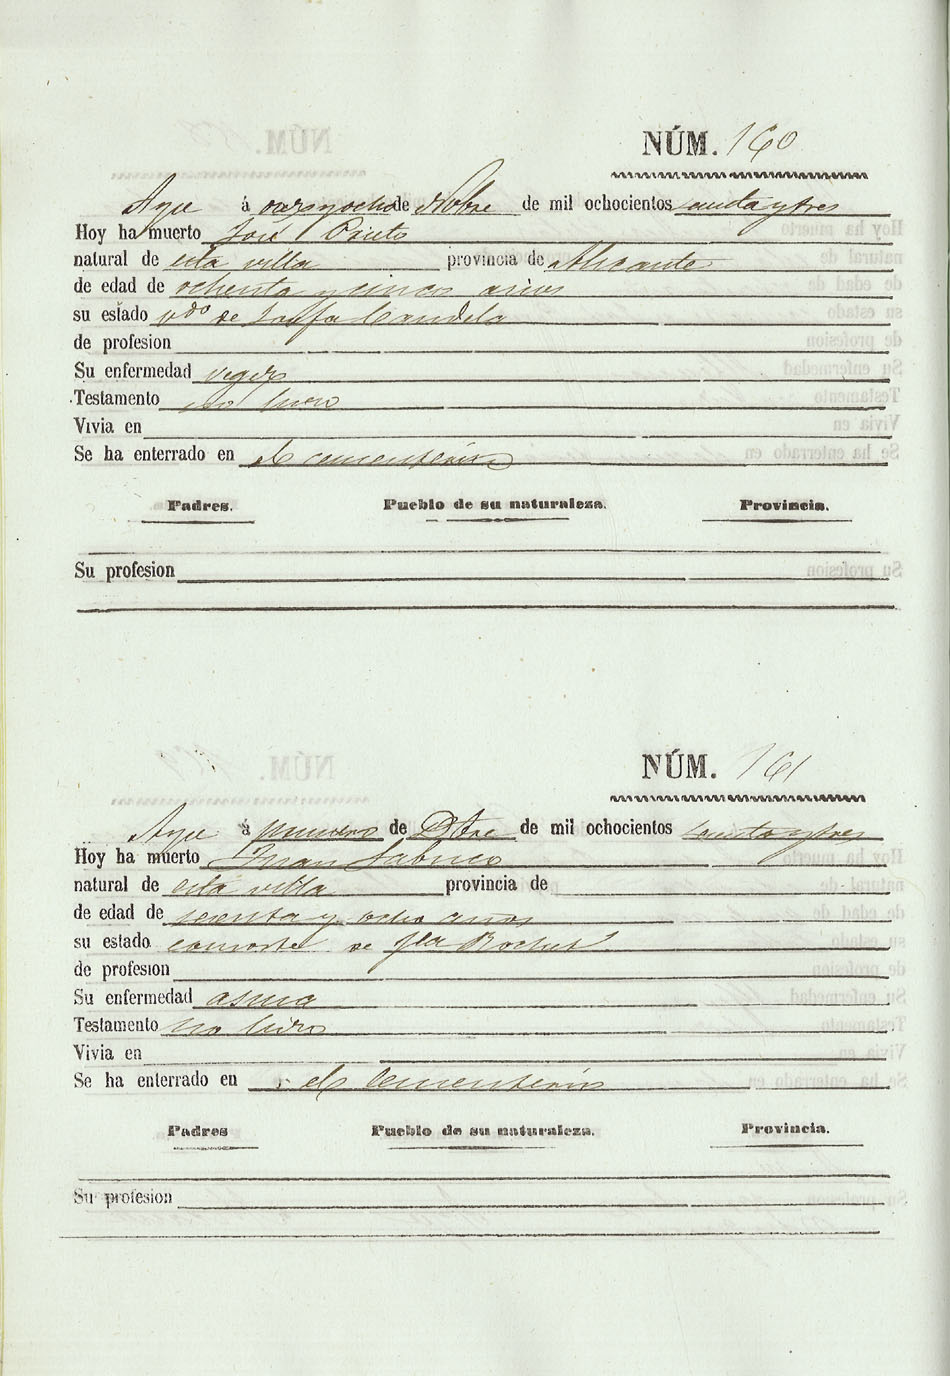 NÚM. 160
á de Nobre de mil ochocientos
Hoy ha muerto José
natural de esta villa provincia de Alicante
de edad de ochenta y cinco años
su estado vdo de Candela
de profesion
Su enfermedad vegez
Testamento no hizo
Vivia en
Se ha enterrado en el cementerio
Padres. Pueblo de su naturaleza. Provincia.
Su profesion
NÚM. 161
á primero de Dbre de mil ochocientos
Hoy ha muerto Juan
natural de esta villa provincia de
de edad de y ocho años
su estado consorte de
de profesion
Su enfermedad asma
Testamento no hizo
Vivia en
Se ha enterrado en el Cementerio
Padres Pueblo de su naturaleza. Provincia.
Su profesion